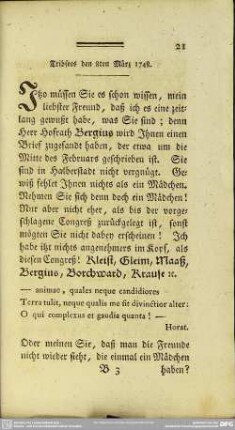 21
Tribsees den 8ten März 1748.
Itzo müssen Sie es schon wissen, mein
liebster Freund, daß ich es eine zeit-
lang gewußt habe, was Sie sind; denn
Herr Hofrath Bergius wird Ihnen einen
Brief zugesandt haben, der etwa um die
Mitte des Februars geschrieben ist. Sie
sind in Halberstadt nicht vergnügt. Ge-
wiß fehlet Ihnen nichts als ein Mädchen.
Nehmen Sie sich denn doch ein Mädchen!
Nur aber nicht eher, als bis der vorge-
schlagene Congreß zurückgelegt ist, sonst
mögten Sie nicht dabey erscheinen! Ich
habe itzt nichts angenehmers im Kopf, als
diesen Congreß! Kleist, Gleim, Maaß,
Bergius, Borchward, Krause ꝛc.
— animae, quales neque candidiores
Terra tulit, neque qualis me sit divinctior alter:
O qui complexus et gaudia quanta! —
Horat.
Oder meinen Sie, daß man die Freunde
nicht wieder sieht, die einmal ein Mädchen
B 3 haben?